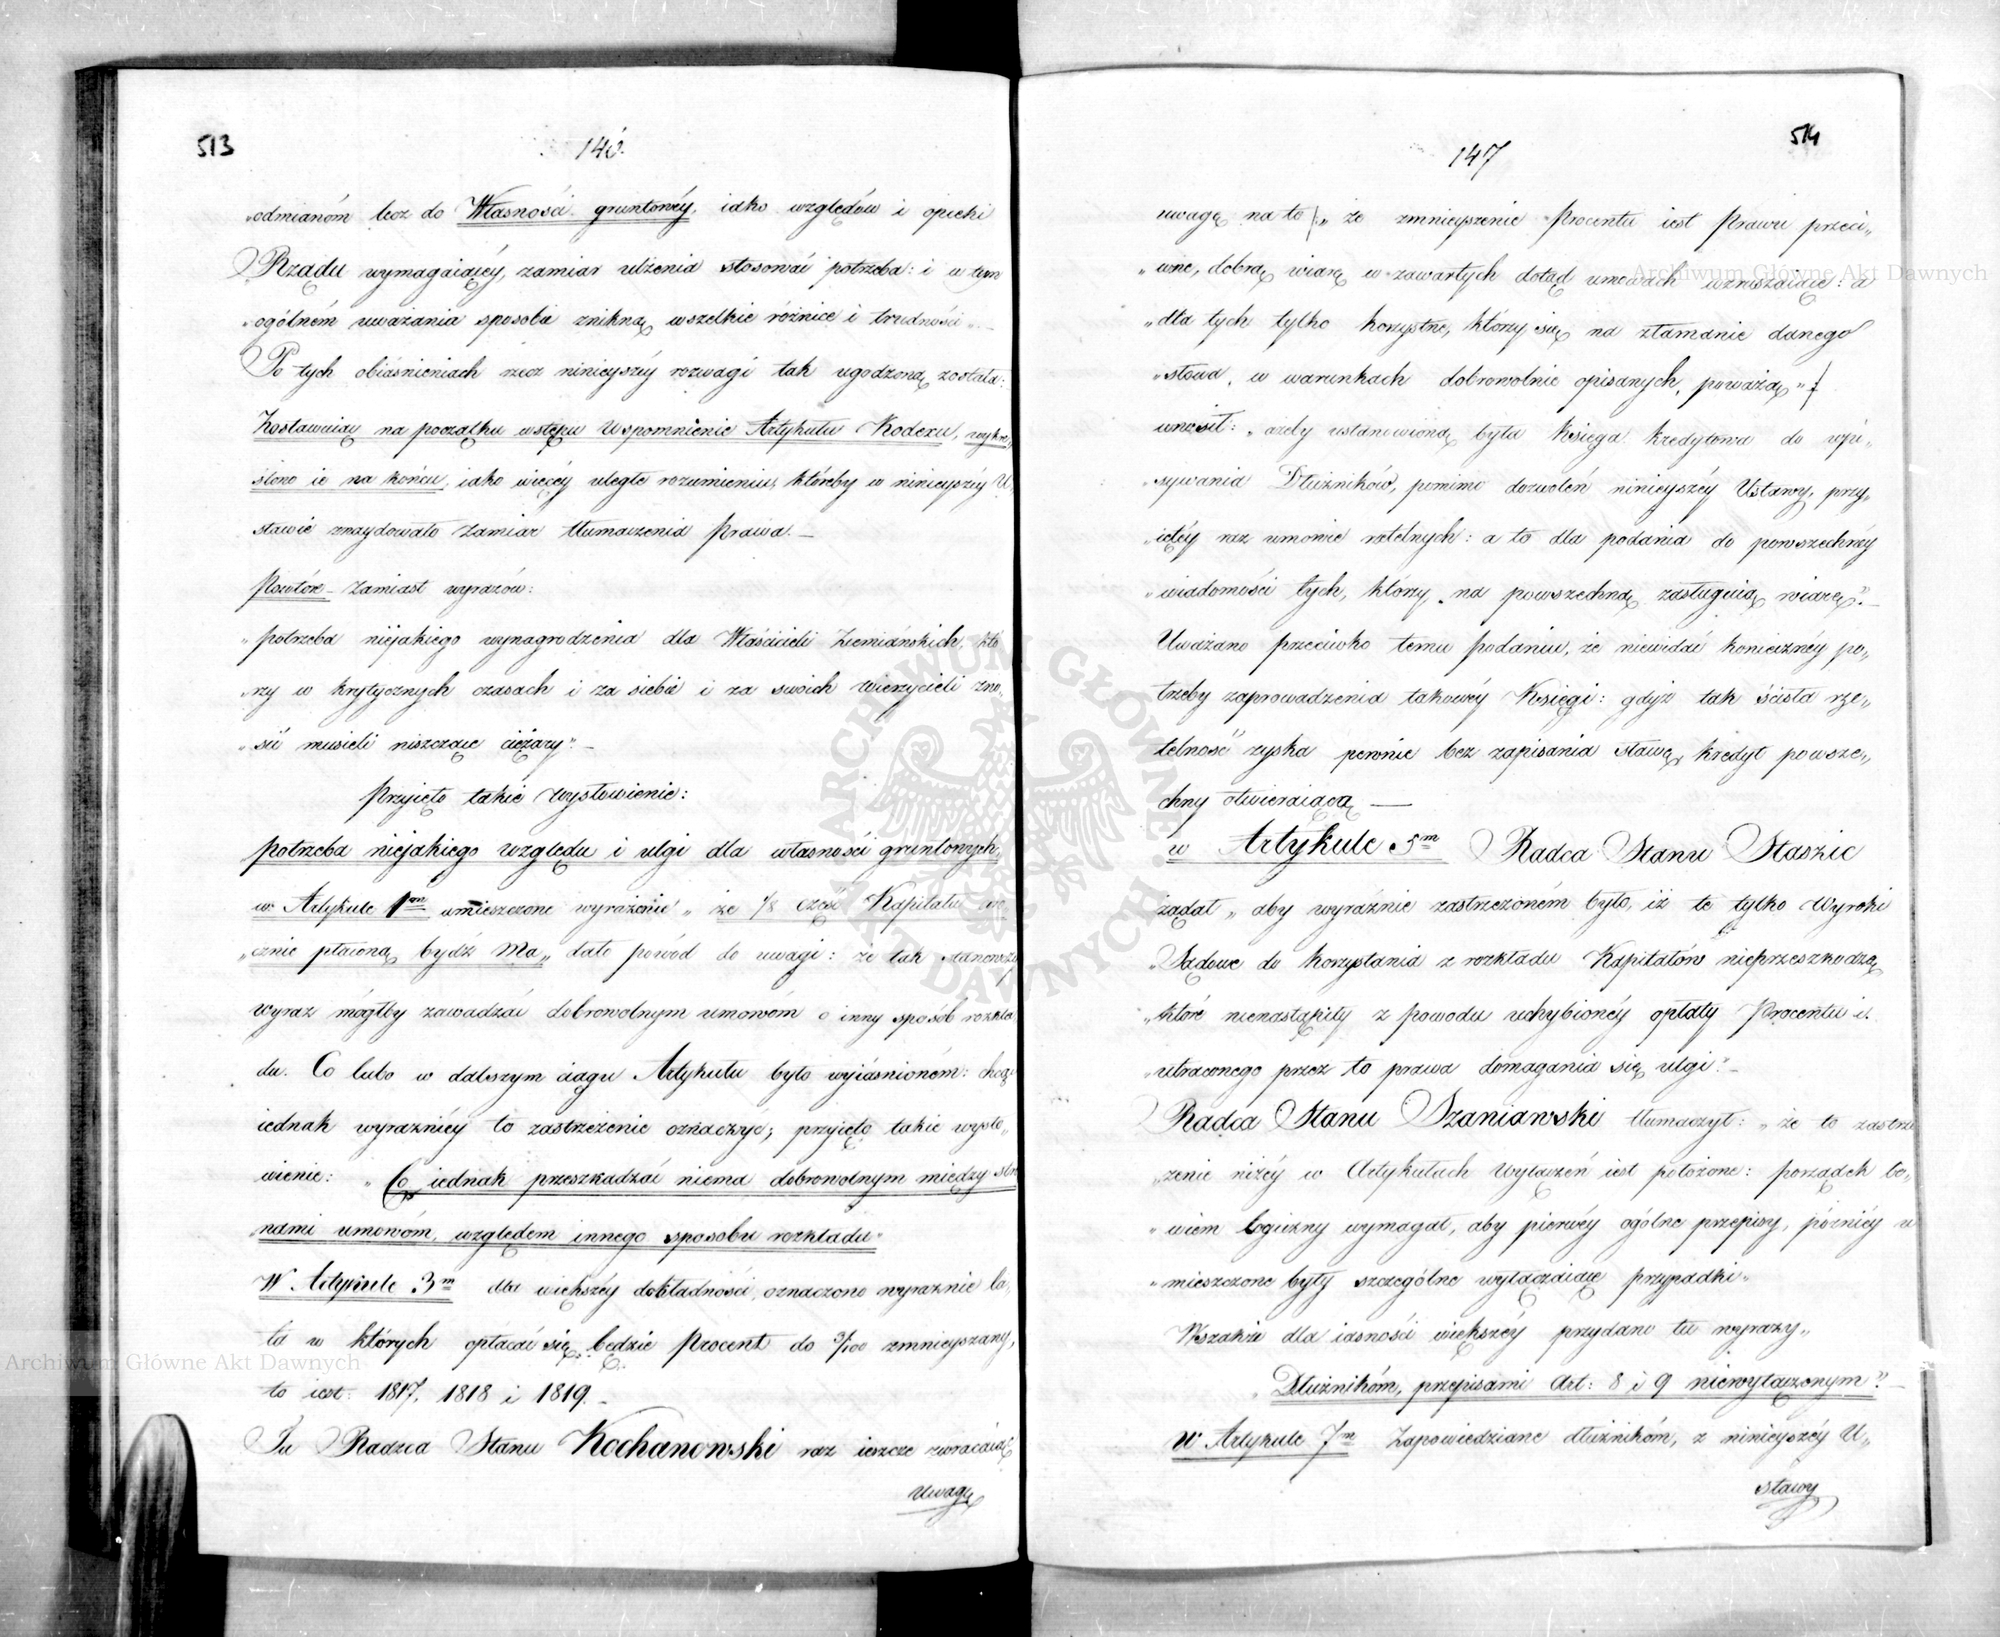 513
146.
„odmianóm lecz do Własności gruntowéy, iako względów i opieki
Rządu wymagaiącéy, zamiar ulżenia stosować potrzeba: i w tym
„ogólném uważania sposobie znikną wszelkie różnice i trudności„.—
Po tych obiaśnieniach rzecz ninieyszéy rozwagi tak ugodzoną została:
Zostawuiąc na początku wstępu Wspomnienie Artykułu Kodexu, wykre„
ślono ie na końcu, iako więcéy uległe rozumieniu, któreby w ninieyszéy U„
stawie znaydowało zamiar tłumaczenia Prawa.—
Powtóre– zamiast wyrazów:
„potrzeba niejakiego wynagrodzenia dla Właścicieli Ziemiańskich, któ
„rzy w krytycznych czasach i za siebie i za swoich wierzycieli zno„
„sić musieli niszczące ciężary”.—
Przyięto takie wysłowienie:
potrzeba niejakiego względu i ulgi dla własności gruntowych,
w Artykule 1m umieszczone wyrażenie „że 1/8 część Kapitału ro
„cznie płaconą bydź ma„ dało powód do uwagi: że tak stanowczy
wyraz mógłby zawadzać dobrowolnym umowóm o inny sposób rozkła
du. Co lubo w dalszym ciągu Artykułu było wyiaśnioném: chcąc
iednak wyraźniéy to zastrzeżenie oznaczyć; przyięto takie wysło„
wienie: „Co iednak przeszkadzać niema dobrowolnym między stro
nami umowóm, względem innego sposobu rozkładu”
W Artykule 3m dla większéy dokładności, oznaczono wyraźnie la„
ta w których opłacać się będzie Procent do 3/100 zmnieyszany,
to iest: 1817, 1818 i 1819.—
Tu Radca Stanu Kochanowski raz ieszcze zwracaiąc
uwagę
514
147
uwagę na to /: „że zmnieyszenie Procentu iest Prawu przeci„
„wne, dobrą wiarę w zawartych dotąd umowach wzruszaiące: a
„dla tych tylko korzystne, którzy się na złamanie danego
„słowa, w warunkach dobrowolnie opisanych, poważą” :/
wnosił: „ażeby ustanowioną była Księga kredytowa do wpi„
„sywania Dłużników, pomimo dozwoleń ninieyszéy Ustawy, przy„
„iętéy raz umowie rzetelnych: a to dla podania do powszechnéy
„wiadomości tych, którzy na powszechną zasługuią wiarę”.—
Uważano przeciwko temu podaniu, że niewidać konieczney po„
trzeby zaprowadzenia takowéy Księgi: gdyż tak ścisła rze„
telność zyska pewnie bez zapisania sławę, kredyt powsze„
chny otwieraiącą —
w Artykule 5m Radca Stanu Staszic
żądał „aby wyraźnie zastrzeżoném było, iż te tylko Wyroki
„Sądowe do korzystania z rozkładu Kapitałów nieprzeszkodzą
„które nienastąpiły z powodu uchybionéy opłaty Procentu i
„utraconego przez to prawa domagania się ulgi”.—
Radca Stanu Szaniawski tłumaczył: „że to zastrze
„żenie niżéy w Artykułach Wyłączeń iest położone: porządek bo„
„wiem logiczny wymagał, aby pierwéy ogólne przepisy, późniéy u
„mieszczone były szczególne wyłączaiące przypadki„
Wszakże dla iasności większéy przydano tu wyrazy„
„Dłużnikóm, przepisami Art: 8 i 9 niewyłączonym”.—
W Artykule 7m Zapowiedziane dłużnikóm, z ninieyszéy U„
stawy
Archiwum Główne Akt Dawnych
Archiwum Główne Akt Dawnych
ARCHIWUM GŁÓWNE AKT DAWNYCH